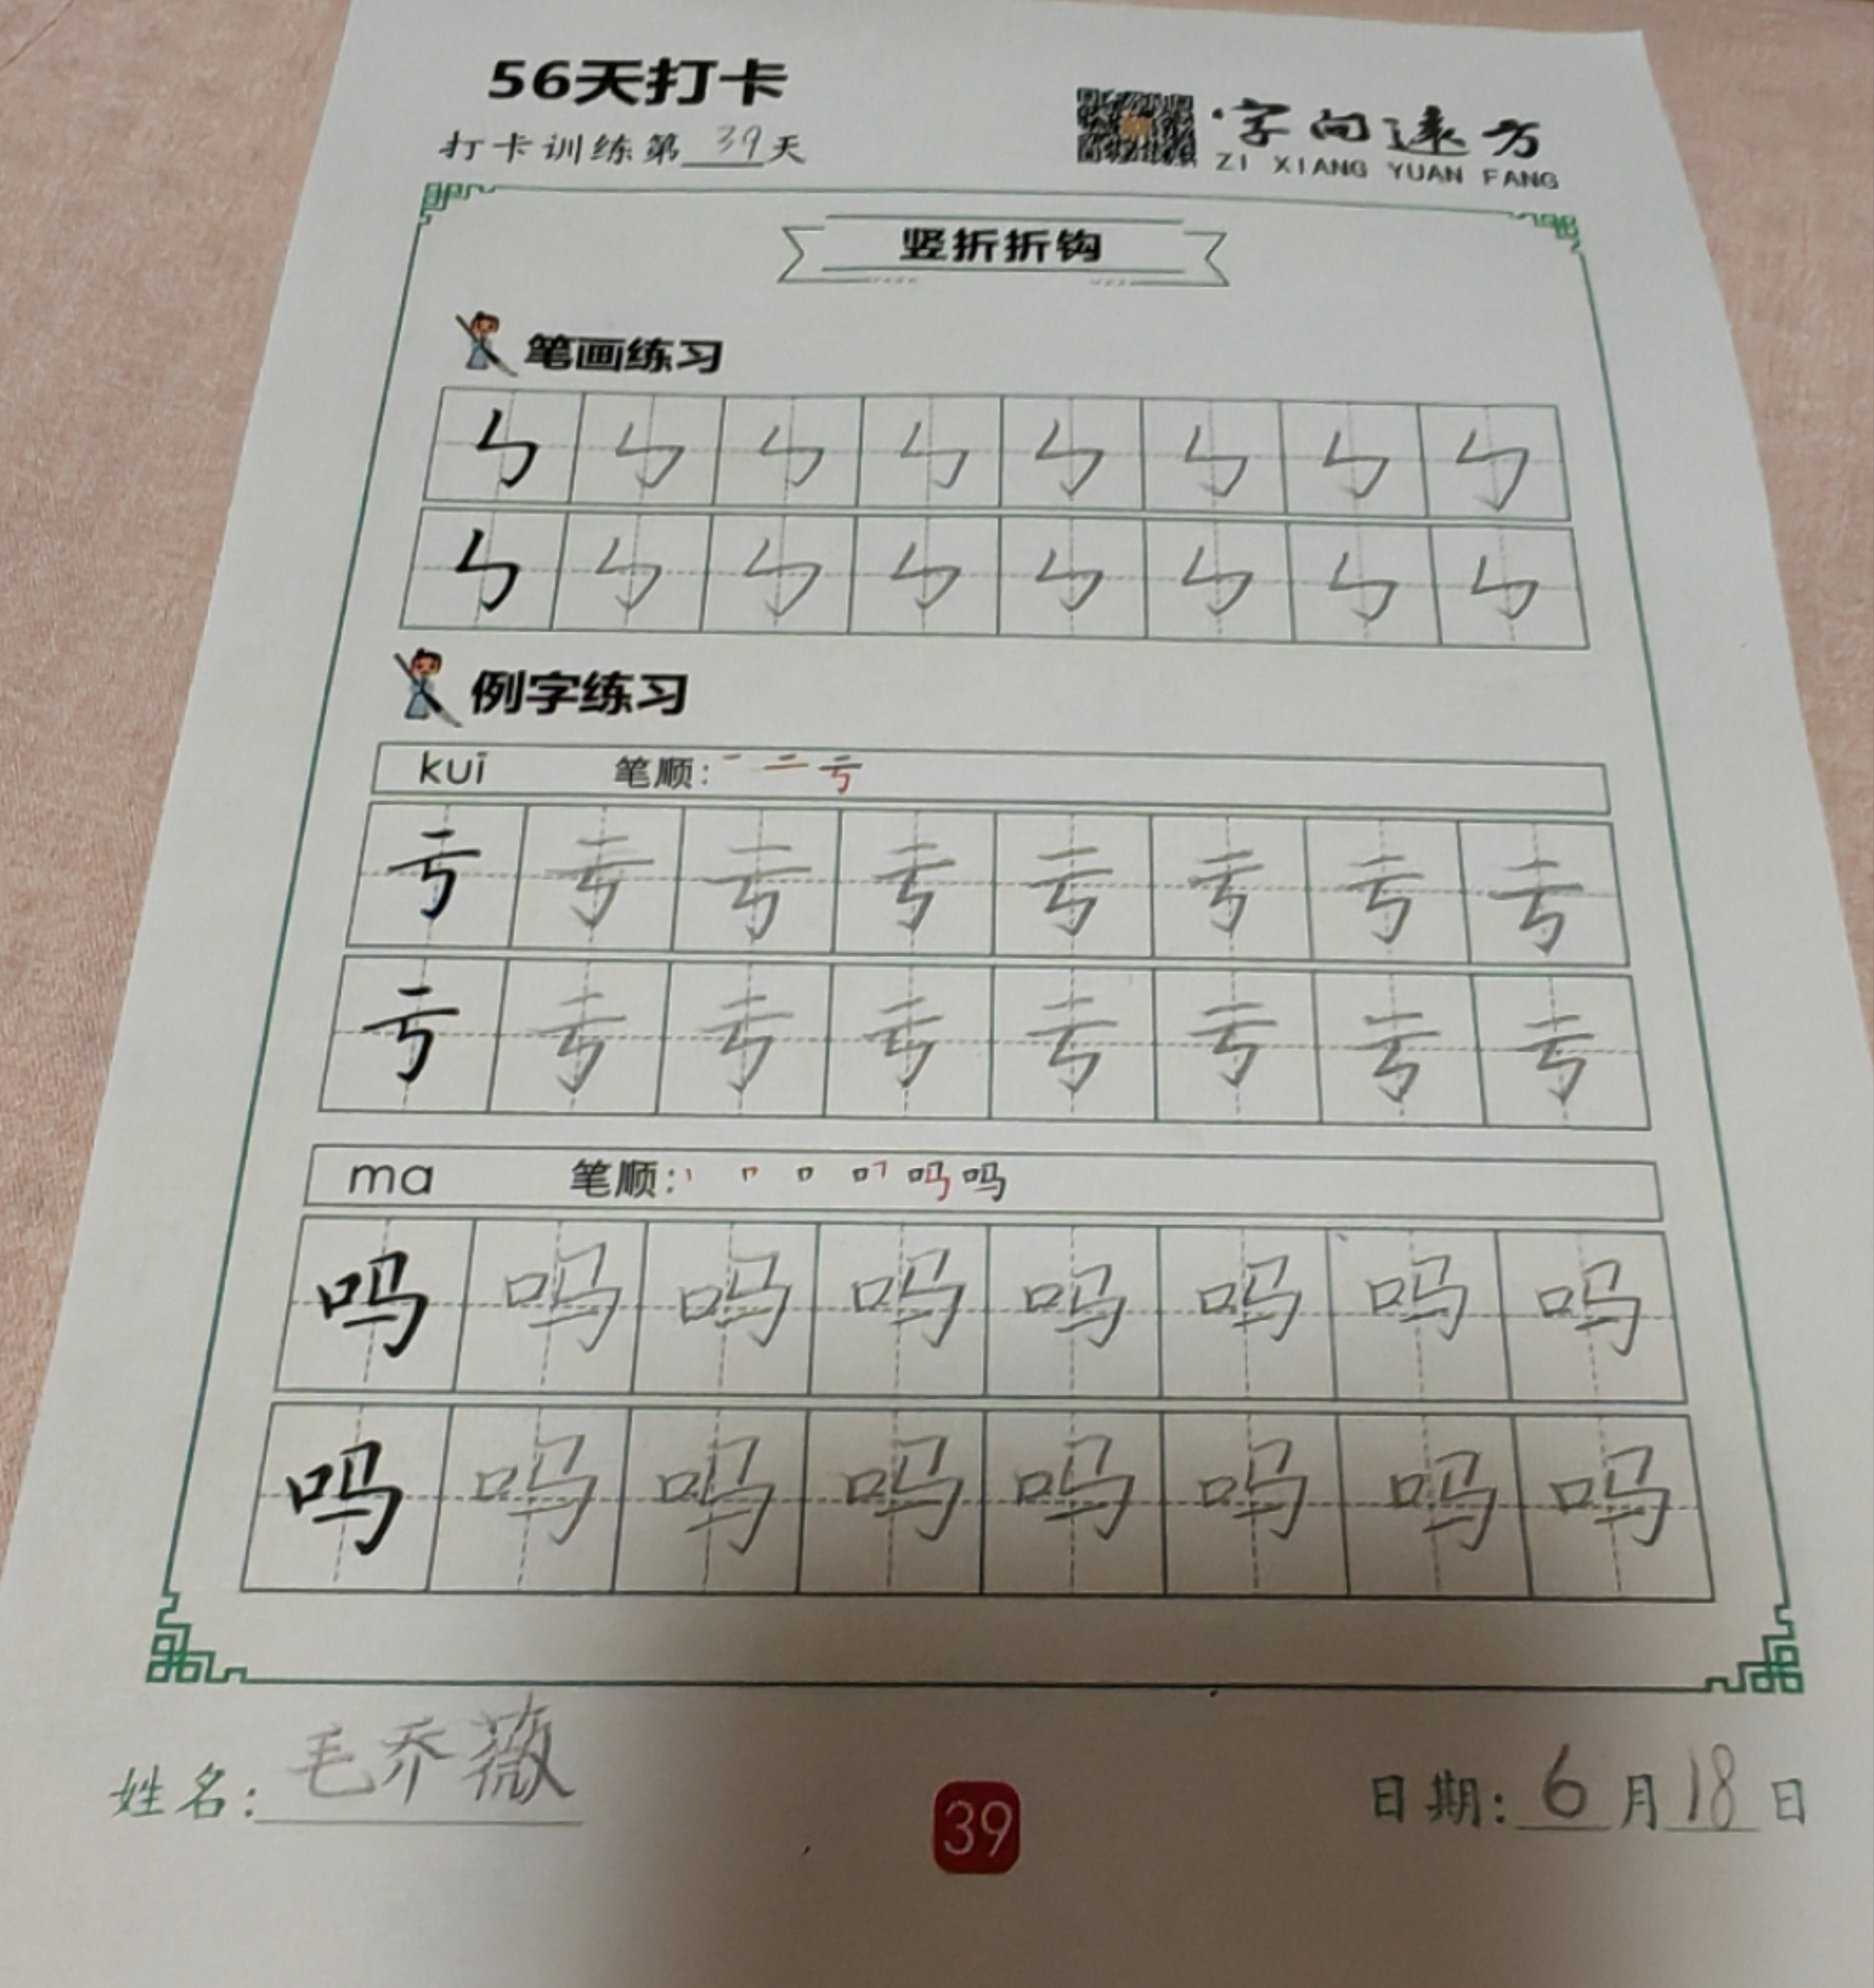 56天打卡
打卡训练第39天
字向远方
ZI XIANG YUAN FANG
竖折折钩
笔画练习
ㄣ ㄣ ㄣ ㄣ ㄣ ㄣ ㄣ ㄣ
ㄣ ㄣ ㄣ ㄣ ㄣ ㄣ ㄣ ㄣ
例字练习
kuī 笔顺: 一 二 亏
亏 亏 亏 亏 亏 亏 亏 亏
亏 亏 亏 亏 亏 亏 亏 亏
ma 笔顺: 丨 冂 口 叮 吗 吗
吗 吗 吗 吗 吗 吗 吗 吗
吗 吗 吗 吗 吗 吗 吗 吗
姓名: 毛乔薇
39
日期: 6月18日